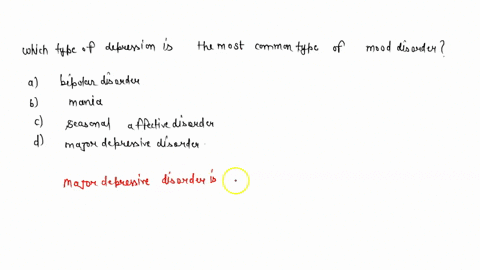 which type of depression is the most common type of mood disorder?
a) bipolar disorder
b) mania
c) seasonal affective disorder
d) major depressive disorder.
major depressive disorder is